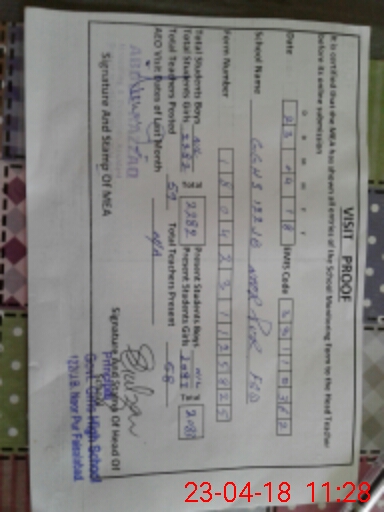 VISIT PROOF
It is certified that the MEA has shown all entries of the School Monitoring Form to the Head Teacher
before its online submission
D D M M Y Y
Date 23 04 18 EMIS Code 33110312
School Name GGHS 122 JB NOOR PUR FSD
Form Number 1804231125825
Total Students Boys Present Students Boys
Total Students Girls 2282 2282 Present Students Girls 2082 2082
Total Teachers Posted 59 Total Teachers Present 58
AEO Visit Dates of Last Month N/A
Signature And Stamp Of MEA
Signature And Stamp Of Head Of
Principal
Govt. Girls High School
122/J.B. Noor Pur Faisalabad
23-04-18 11:28